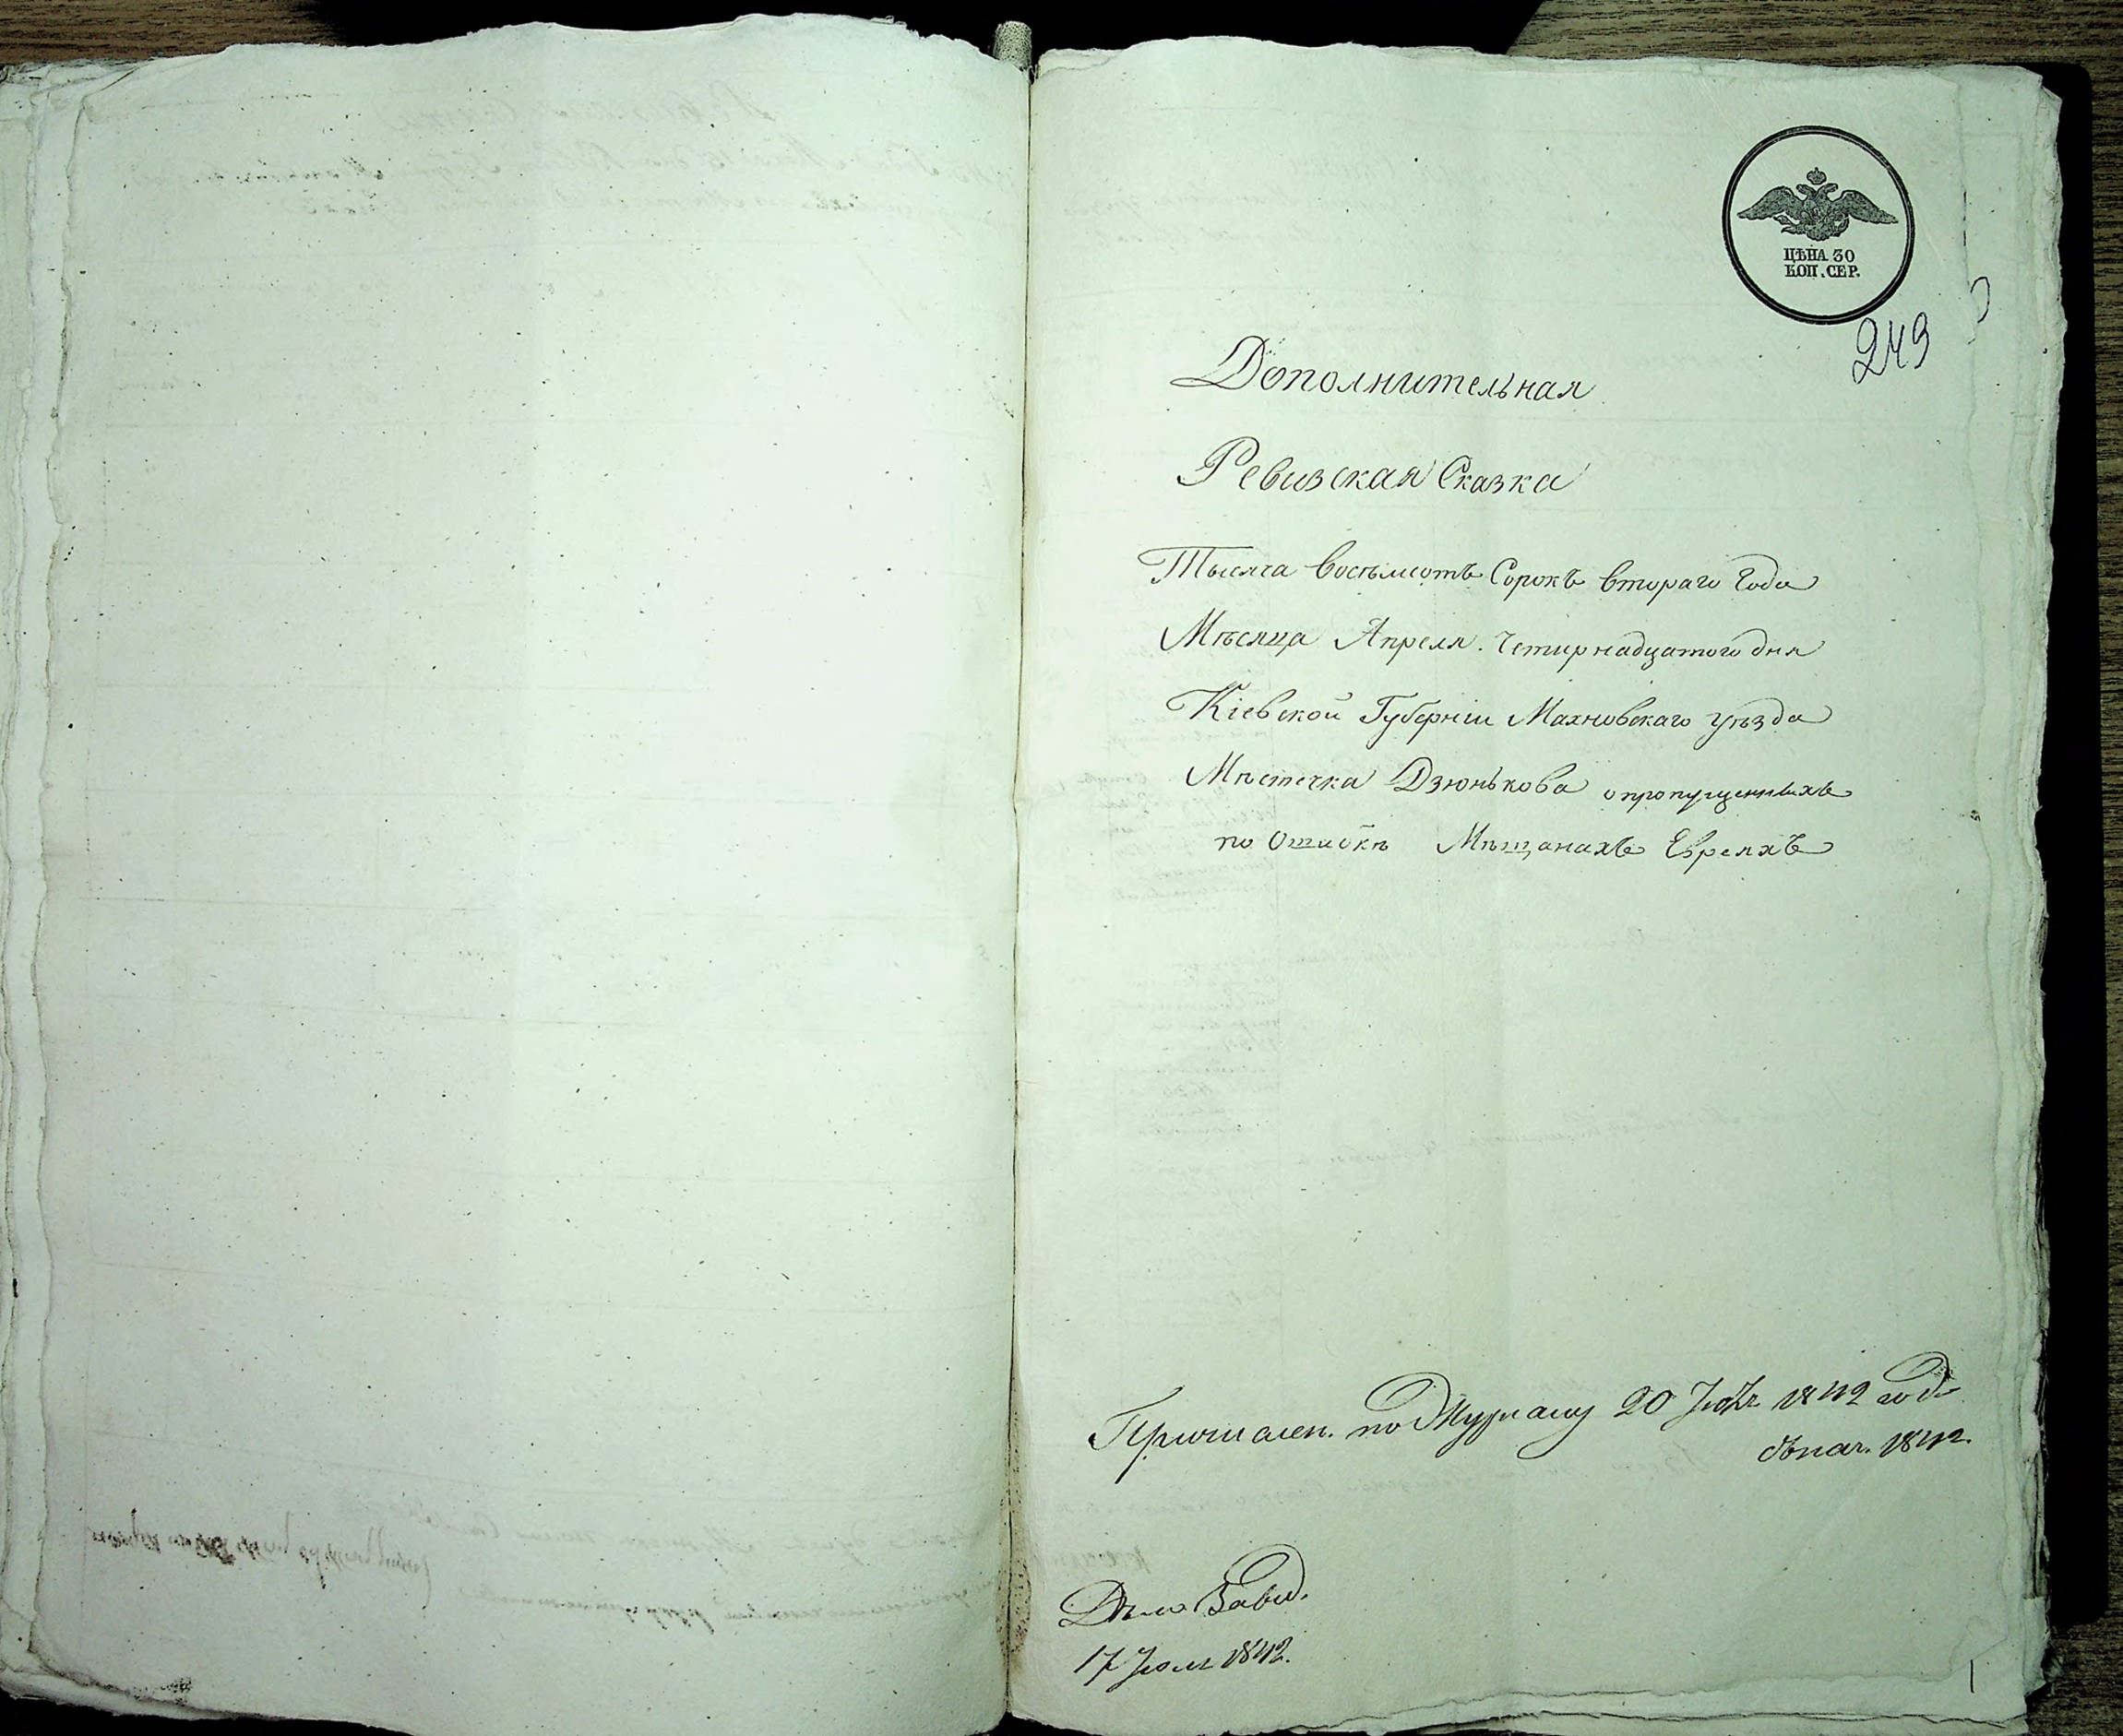 ЦѢНА 30
КОП. СЕР.
249
Дополнительная
Ревизская Сказка
Тысяча восѣмсотъ Сорокъ втораго Года
Мѣсяца Апреля. Четирнадцатого дня
Кіевской Губерніи Махновскаго уѣзда
Мѣстечка Дзюнькова о пропущенныхъ
по Ошибкѣ Мѣщанахъ Евреяхъ
по Журналу 20 1842 года
1842.
Дѣло Завед.
17 Іюля 1842.